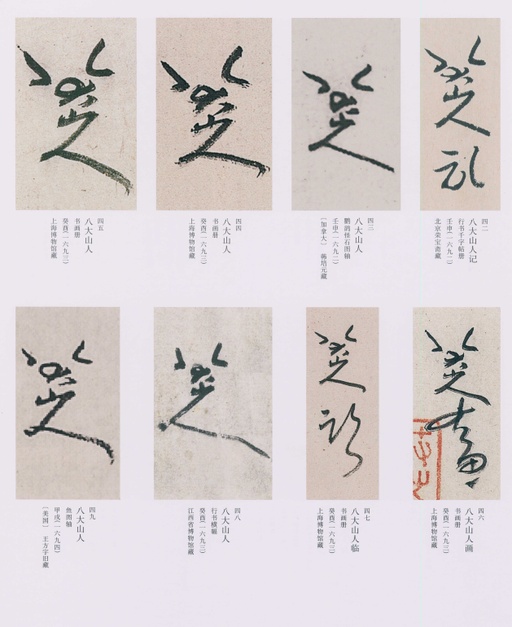 四二
八大山人记
行书千字帖册
壬申(一六九二)
北京荣宝斋藏
四三
八大山人
鹏鸪佳石图轴
壬申(一六九二)
〔加拿大〕
四四
八大山人
书画册
癸酉(一六九三)
上海博物馆藏
四五
八大山人
书画册
癸酉(一六九三)
上海博物馆藏
四六
八大山人画
书画册
癸酉(一六九三)
上海博物馆藏
四七
八大山人临
书画册
癸酉(一六九三)
上海博物馆藏
四八
八大山人
行书横幅
癸酉(一六九三)
江西省博物馆藏
四九
八大山人
鱼图轴
甲戌(一六九四)
〔美国〕 王方宇旧藏